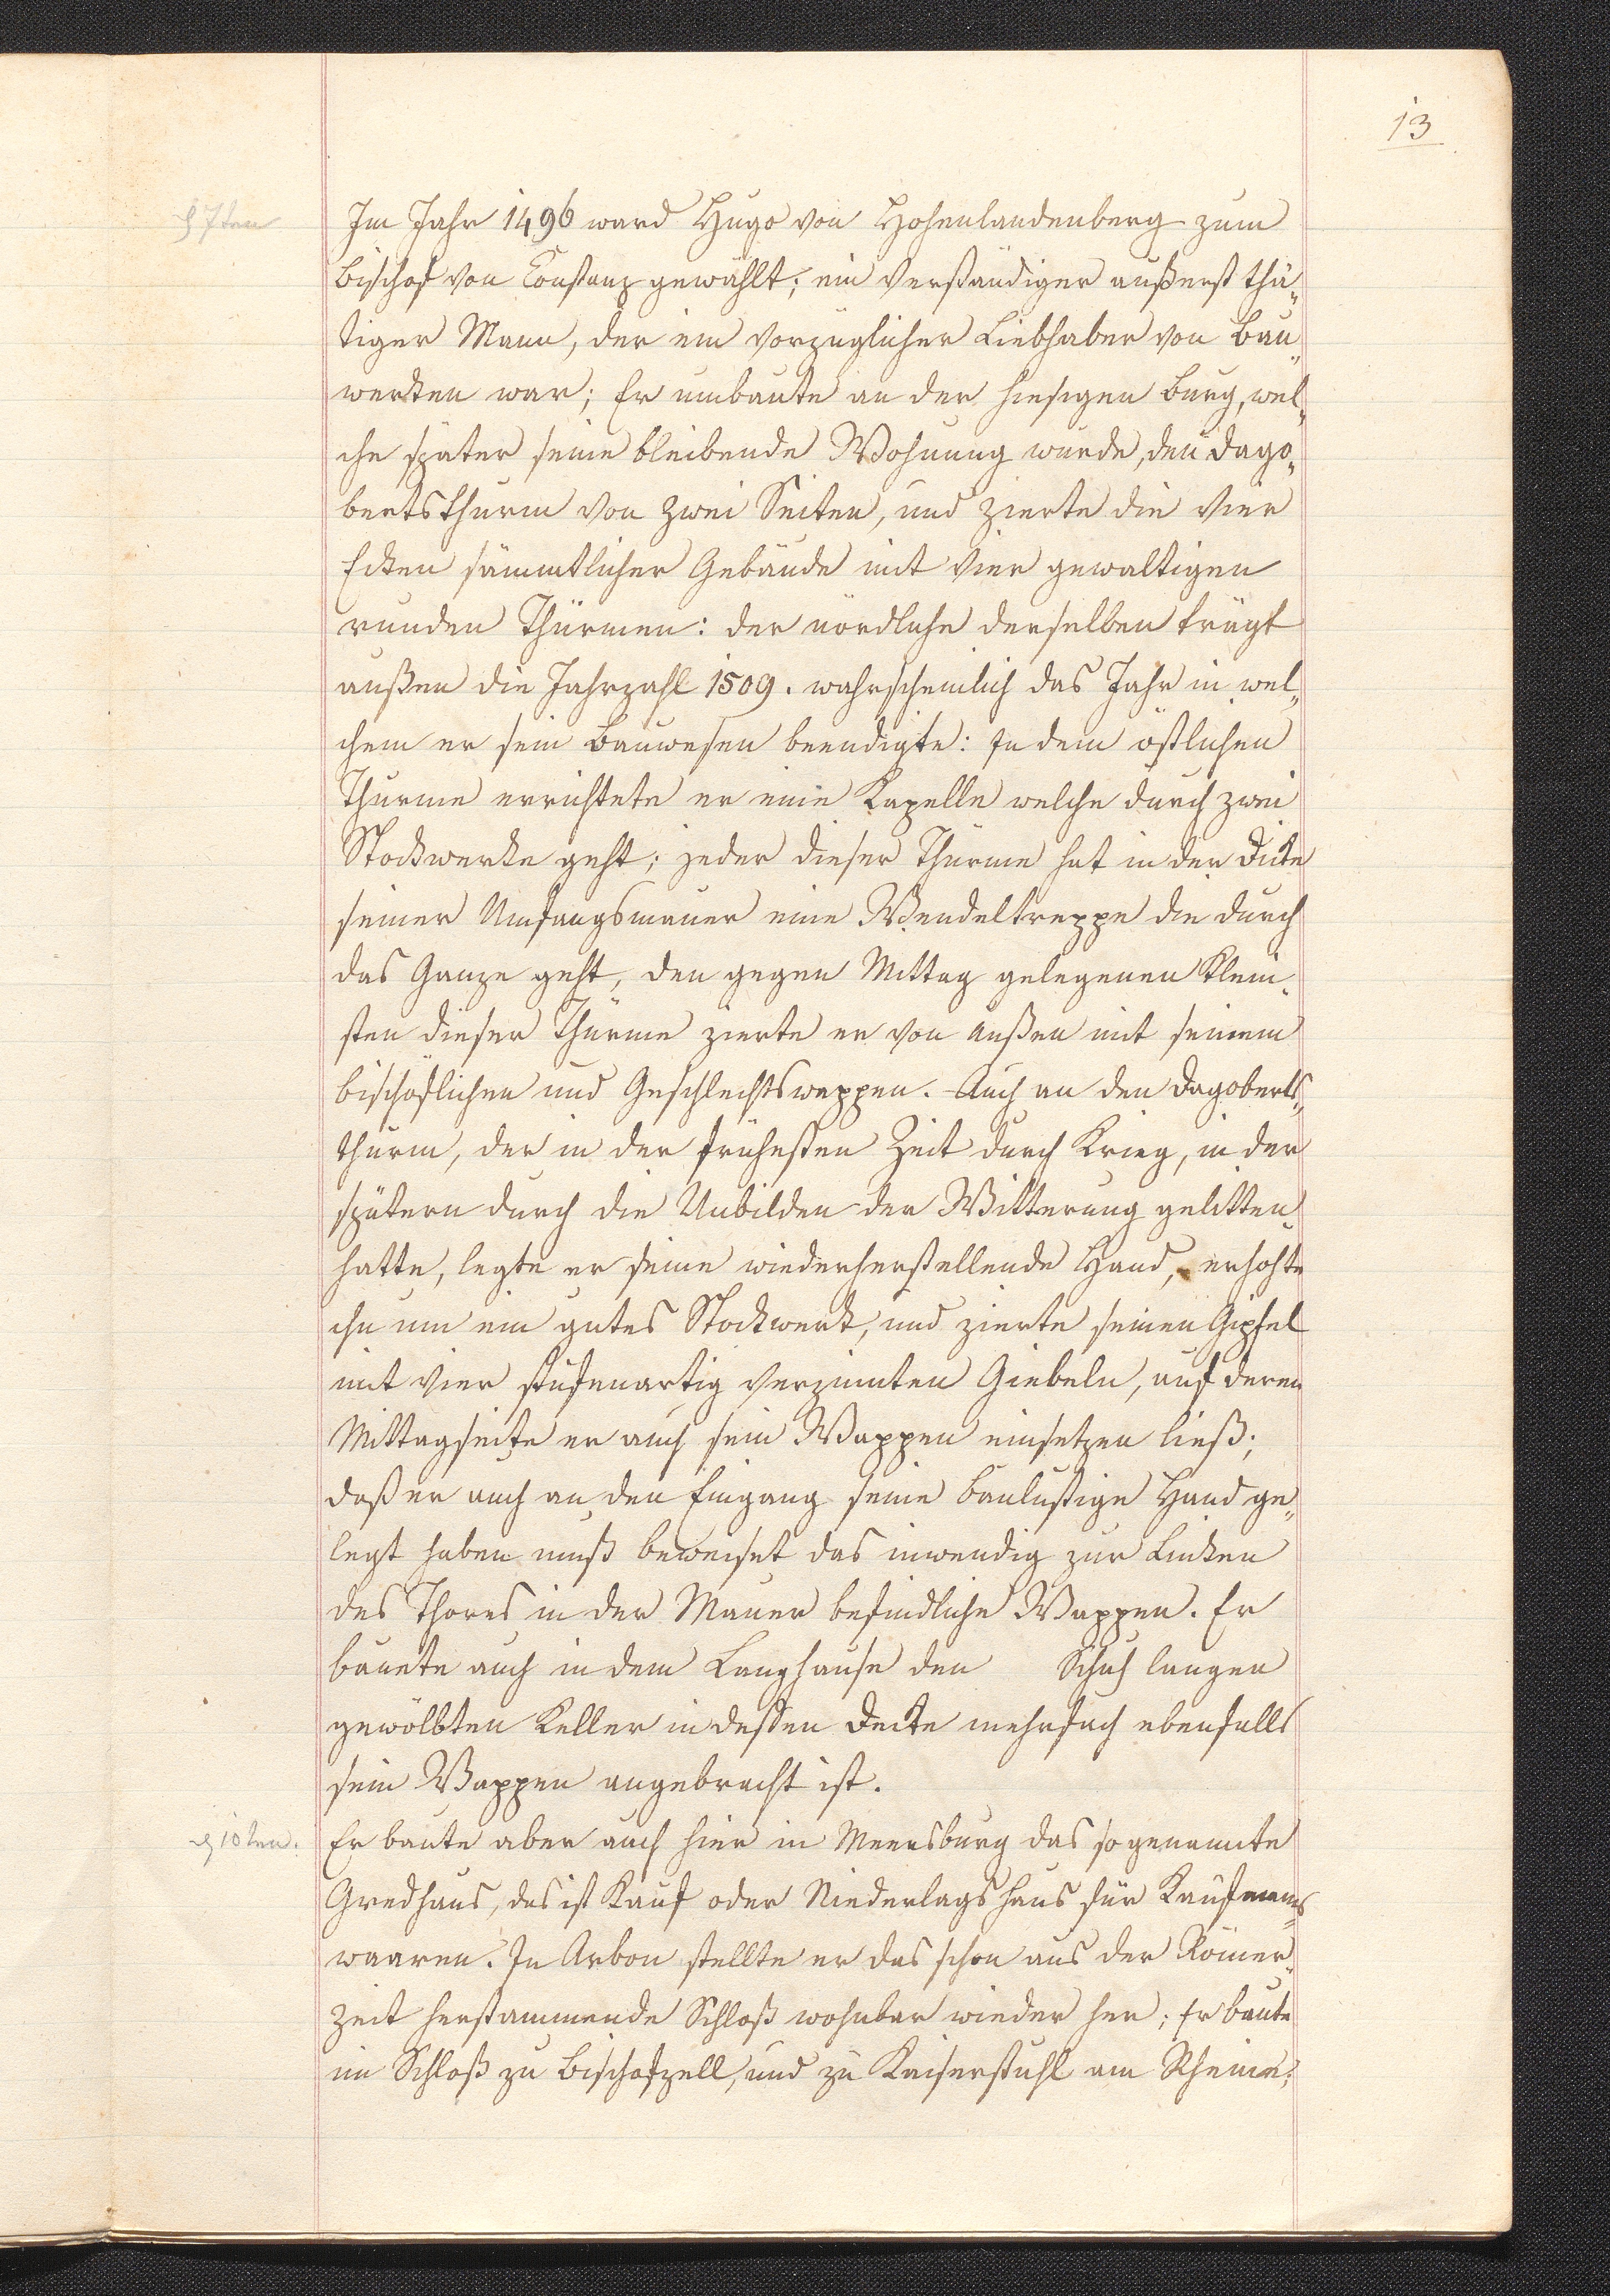 13
d 7ten
Im Jahr 1496 ward Hugo von Hohenlandenberg zum
Bischof von Constanz gewählt; ein verständiger äußerst thä„
tiger Mann, der ein vorzüglicher Liebhaber von Bau„
werken war; Er umbaute an der hiesigen Burg, wel„
che später seine bleibende Wohnung wurde, den Dago„
bertsthurm von zwei Seiten, und zierte die vier
Ecken sämmtlicher Gebäude mit vier gewaltigen
runden Thürmen: der nördliche derselben trägt
außen die Jahrzahl 1509. wahrscheinlich das Jahr in wel„
chem er sein Bauwesen beendigte: In dem östlichen
Thurme errichtete er eine Kapelle welche durch zwei
Stockwerke geht; jeder dieser Thürme hat in der Dicke
seiner Umfangsmauer eine Wendeltreppe die durch
das Ganze geht, den gegen Mittag gelegenen klein„
sten dieser Thürme zierte er von außen mit seinem
bischöflichen und Geschlechtswappen. Auch an den Dagoberts„
thurm, der in der frühesten Zeit durch Krieg, in der
spätern durch die Unbilden der Witterung gelitten
hatte, legte er seine wiederherstellende Hand, erhohte
ihn um ein gutes Stockwerk, und zierte seinen Gipfel
mit vier stufenartig verzinnten Giebeln, auf deren
Mittagseite er auch sein Wappen einsetzen ließ;
daß er auch an den Eingang seine baulustige Hand ge„
legt haben muß beweiset das inwendig zur Linken
des Thores in der Mauer befindliche Wappen. Er
bauete auch in dem Langhause den Schuh langen
gewölbten Keller in dessen Decke mehrfach ebenfalls
sein Wappen angebracht ist.
d 10ten.
Er baute aber auch hier in Meersburg das sogenannte
Gredhaus, das ist Kauf oder Niederlagshaus für Kaufmanns
waaren. In Arbon stellte er das schon aus der Römer„
zeit herstammende Schloß wohnbar wieder her; Er baute
im Schloß zu Bischofzell, und zu Kaiserstuhl am Rheine;